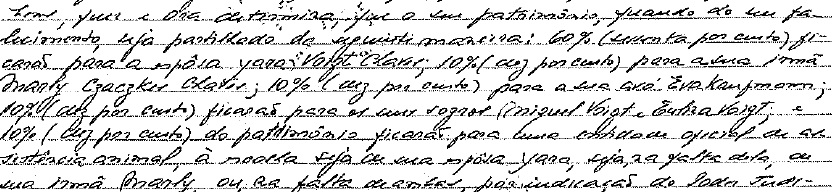 tone, quer e ora determina que o seu patrimônio, quando do seu fa-
lecimento, seja partilhado da seguinte maneira: 60% (sessenta por cento) fi-
carão para a espôsa Yara Voigt Clater; 10% (dez por cento) para a sua irmã
Marly Czaczkes Clater; 10% (dez por cento) para a sua avó Eva Kaufmann;
10% (dez por cento) ficarão para os seus sogros Miguel Voigt e Eulina Voigt; e
10% (dez por cento) do patrimônio ficarão para uma entidade oficial de as-
sistência animal, à escolha seja de sua espôsa Yara, seja, na falta dela, de
sua irmã Marly ou, na falta de ambas, por indicação do Poder Judi-